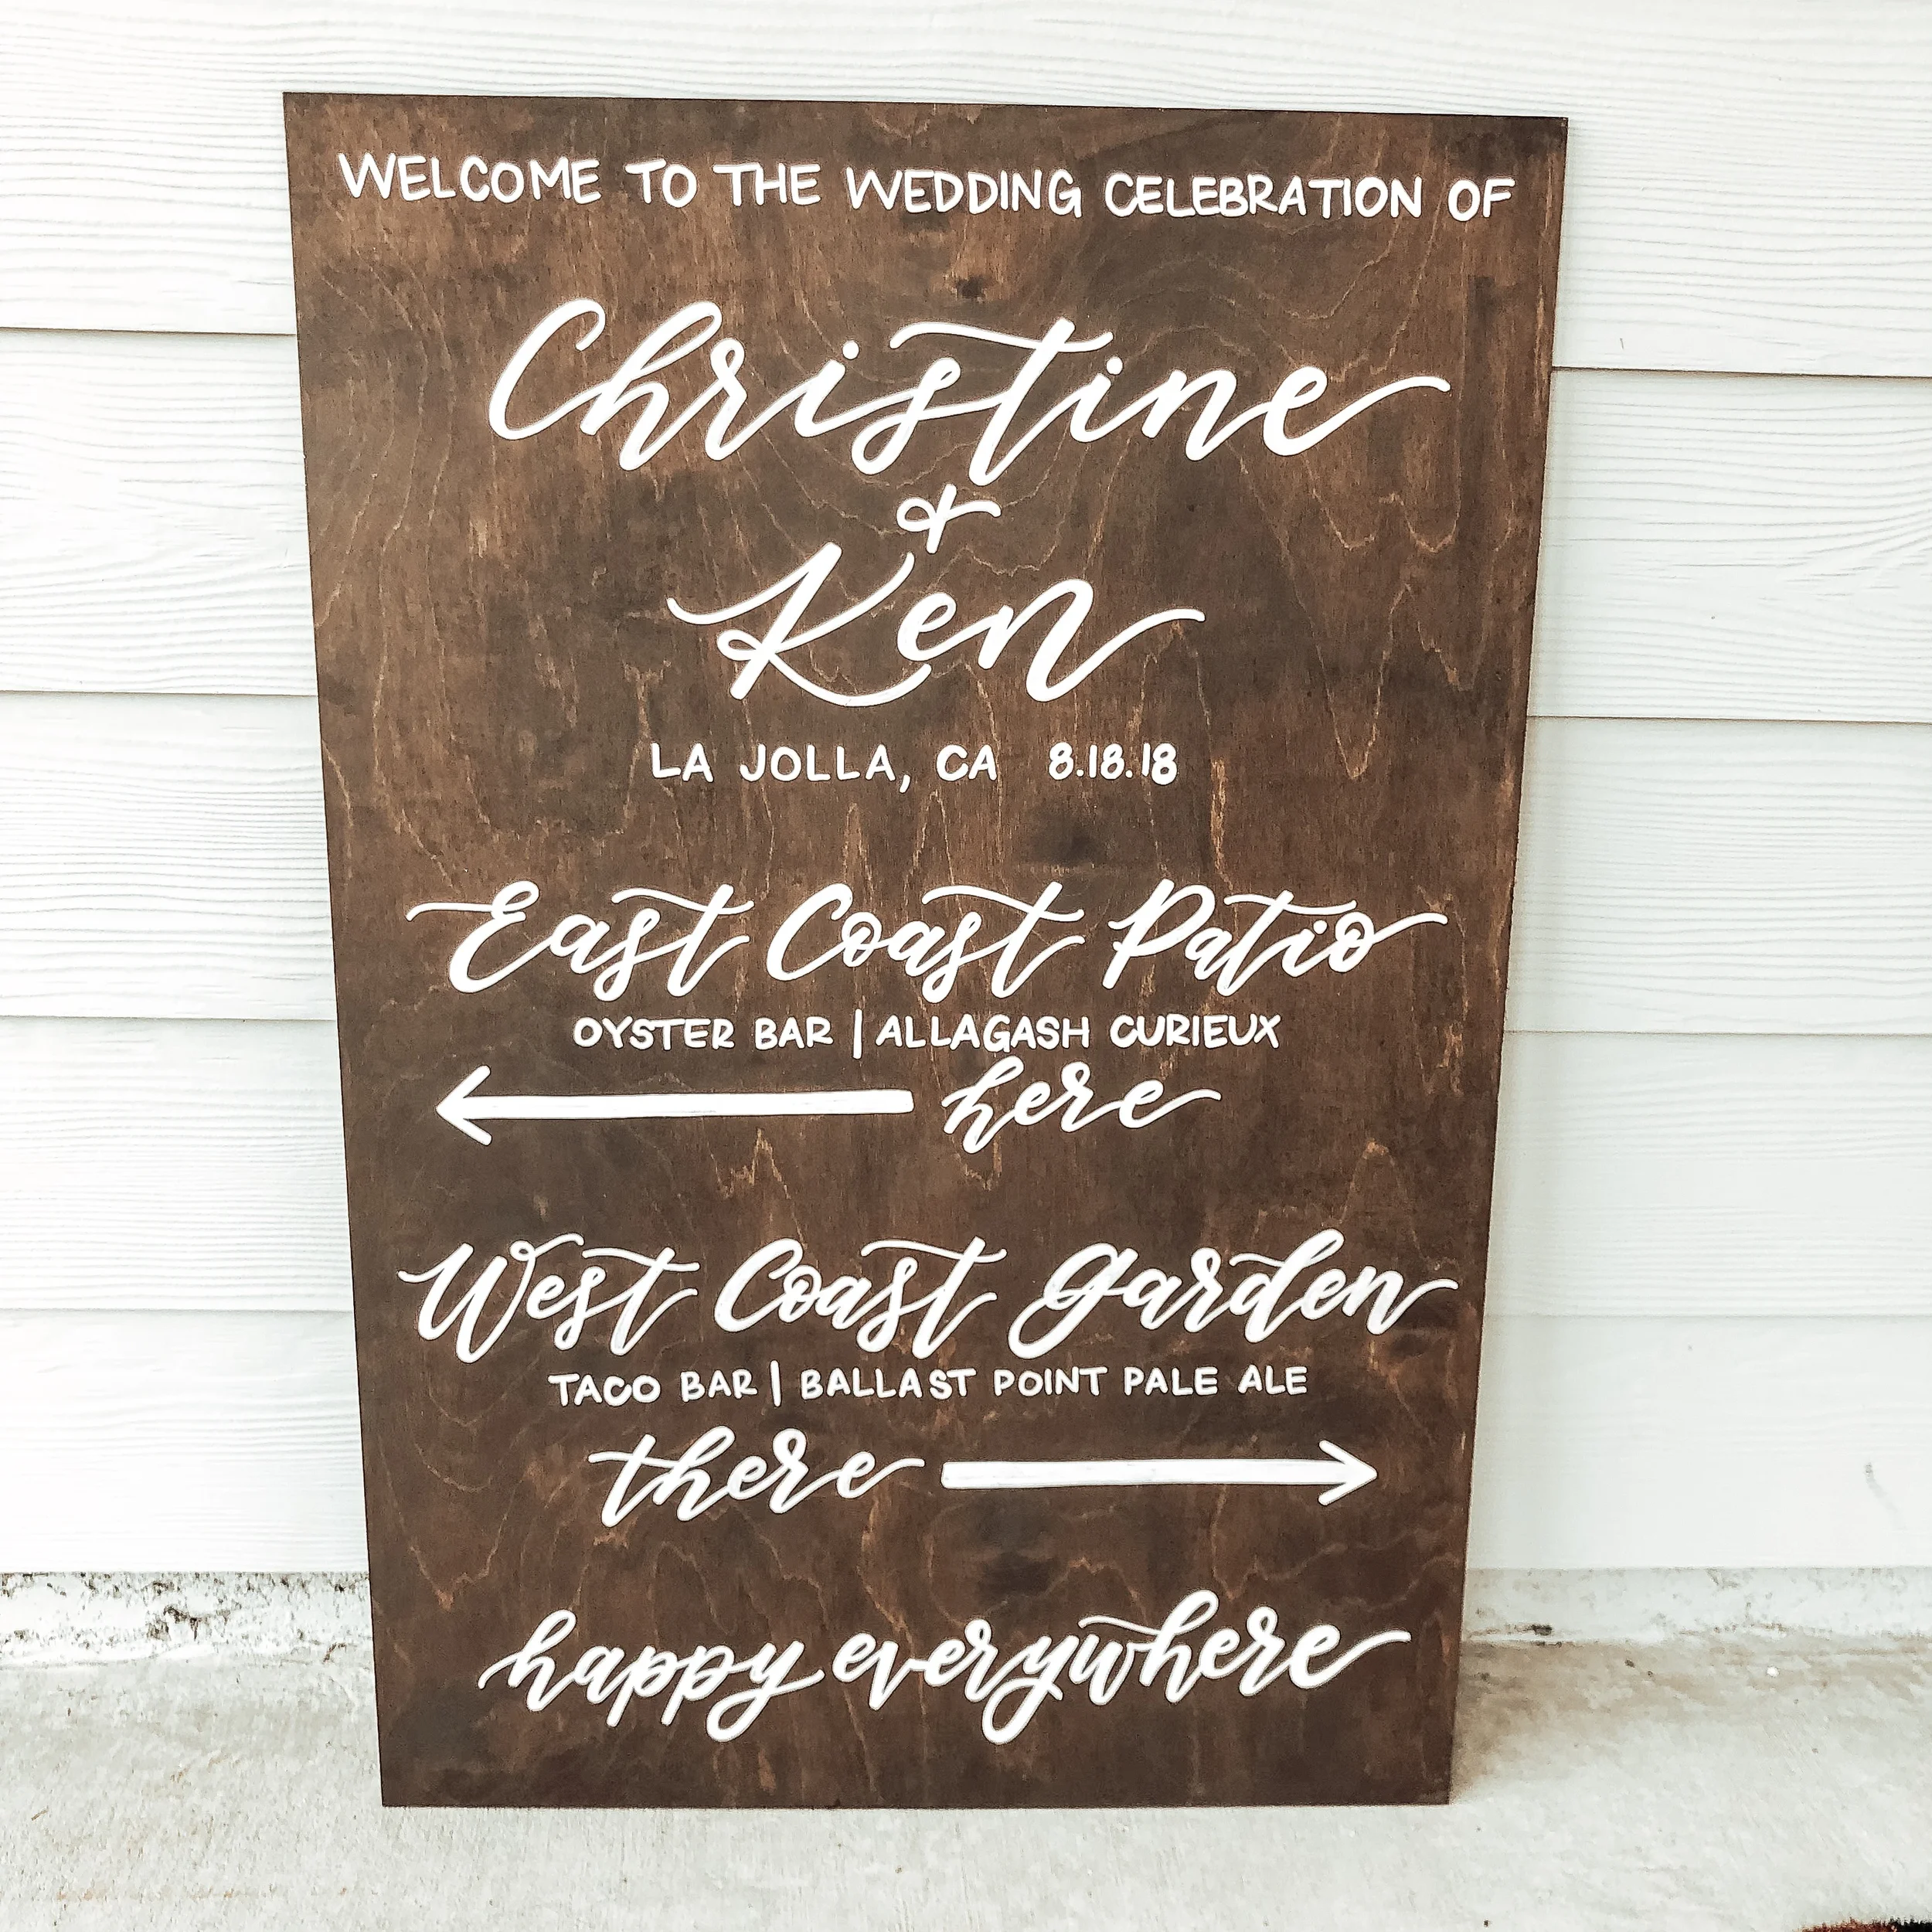 WELCOME TO THE WEDDING CELEBRATION OF
Christine
&
Ken
LA JOLLA, CA 8.18.18
East Coast Patio
OYSTER BAR | ALLAGASH CURIEUX
here
West Coast Garden
TACO BAR | BALLAST POINT PALE ALE
there
happy everywhere